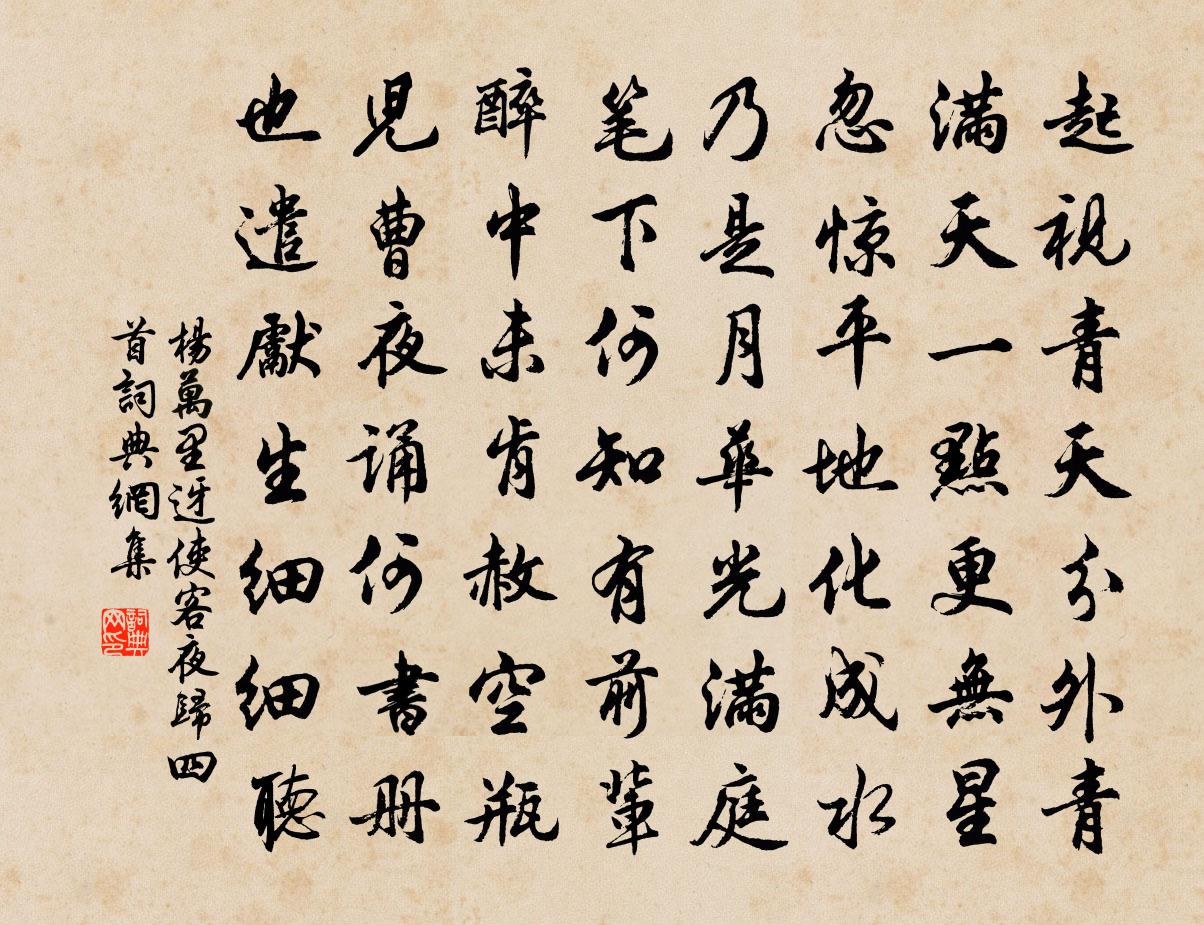 起視青天分外青
滿天一點更無星
忽惊平地化成水
乃是月華光滿庭
笔下何知有前輩
醉中未肯赦空瓶
児曹夜誦何書册
也遣獻生細細聽
楊萬里迓使客夜歸四
首詞典網集
詞典网印